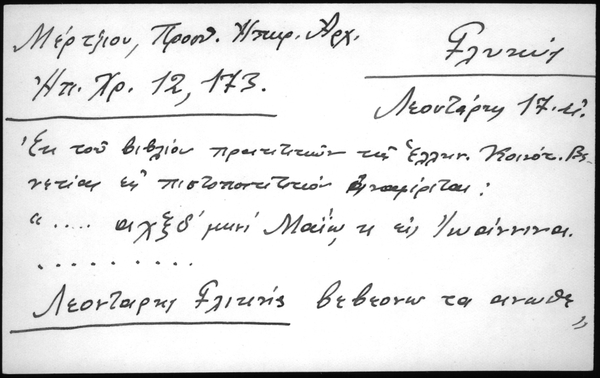 Μέρτζιου, Προσθ. Ηπειρ. Αρχ.
Γλυκύς
Ηπ. Χρ. 12, 173.
Λεοντάρης 17. αι.
Εκ του βιβλίου πρακτικών της Ελλην. Κοινότ. Βε-
νετίας εις πιστοποιητικόν αναφέρεται:
“.... αχξδ' μηνί Μαΐω, κ εις Ιωάννινα.
..........
Λεονταρης Γλικης βεβεονω τα ανωθε”